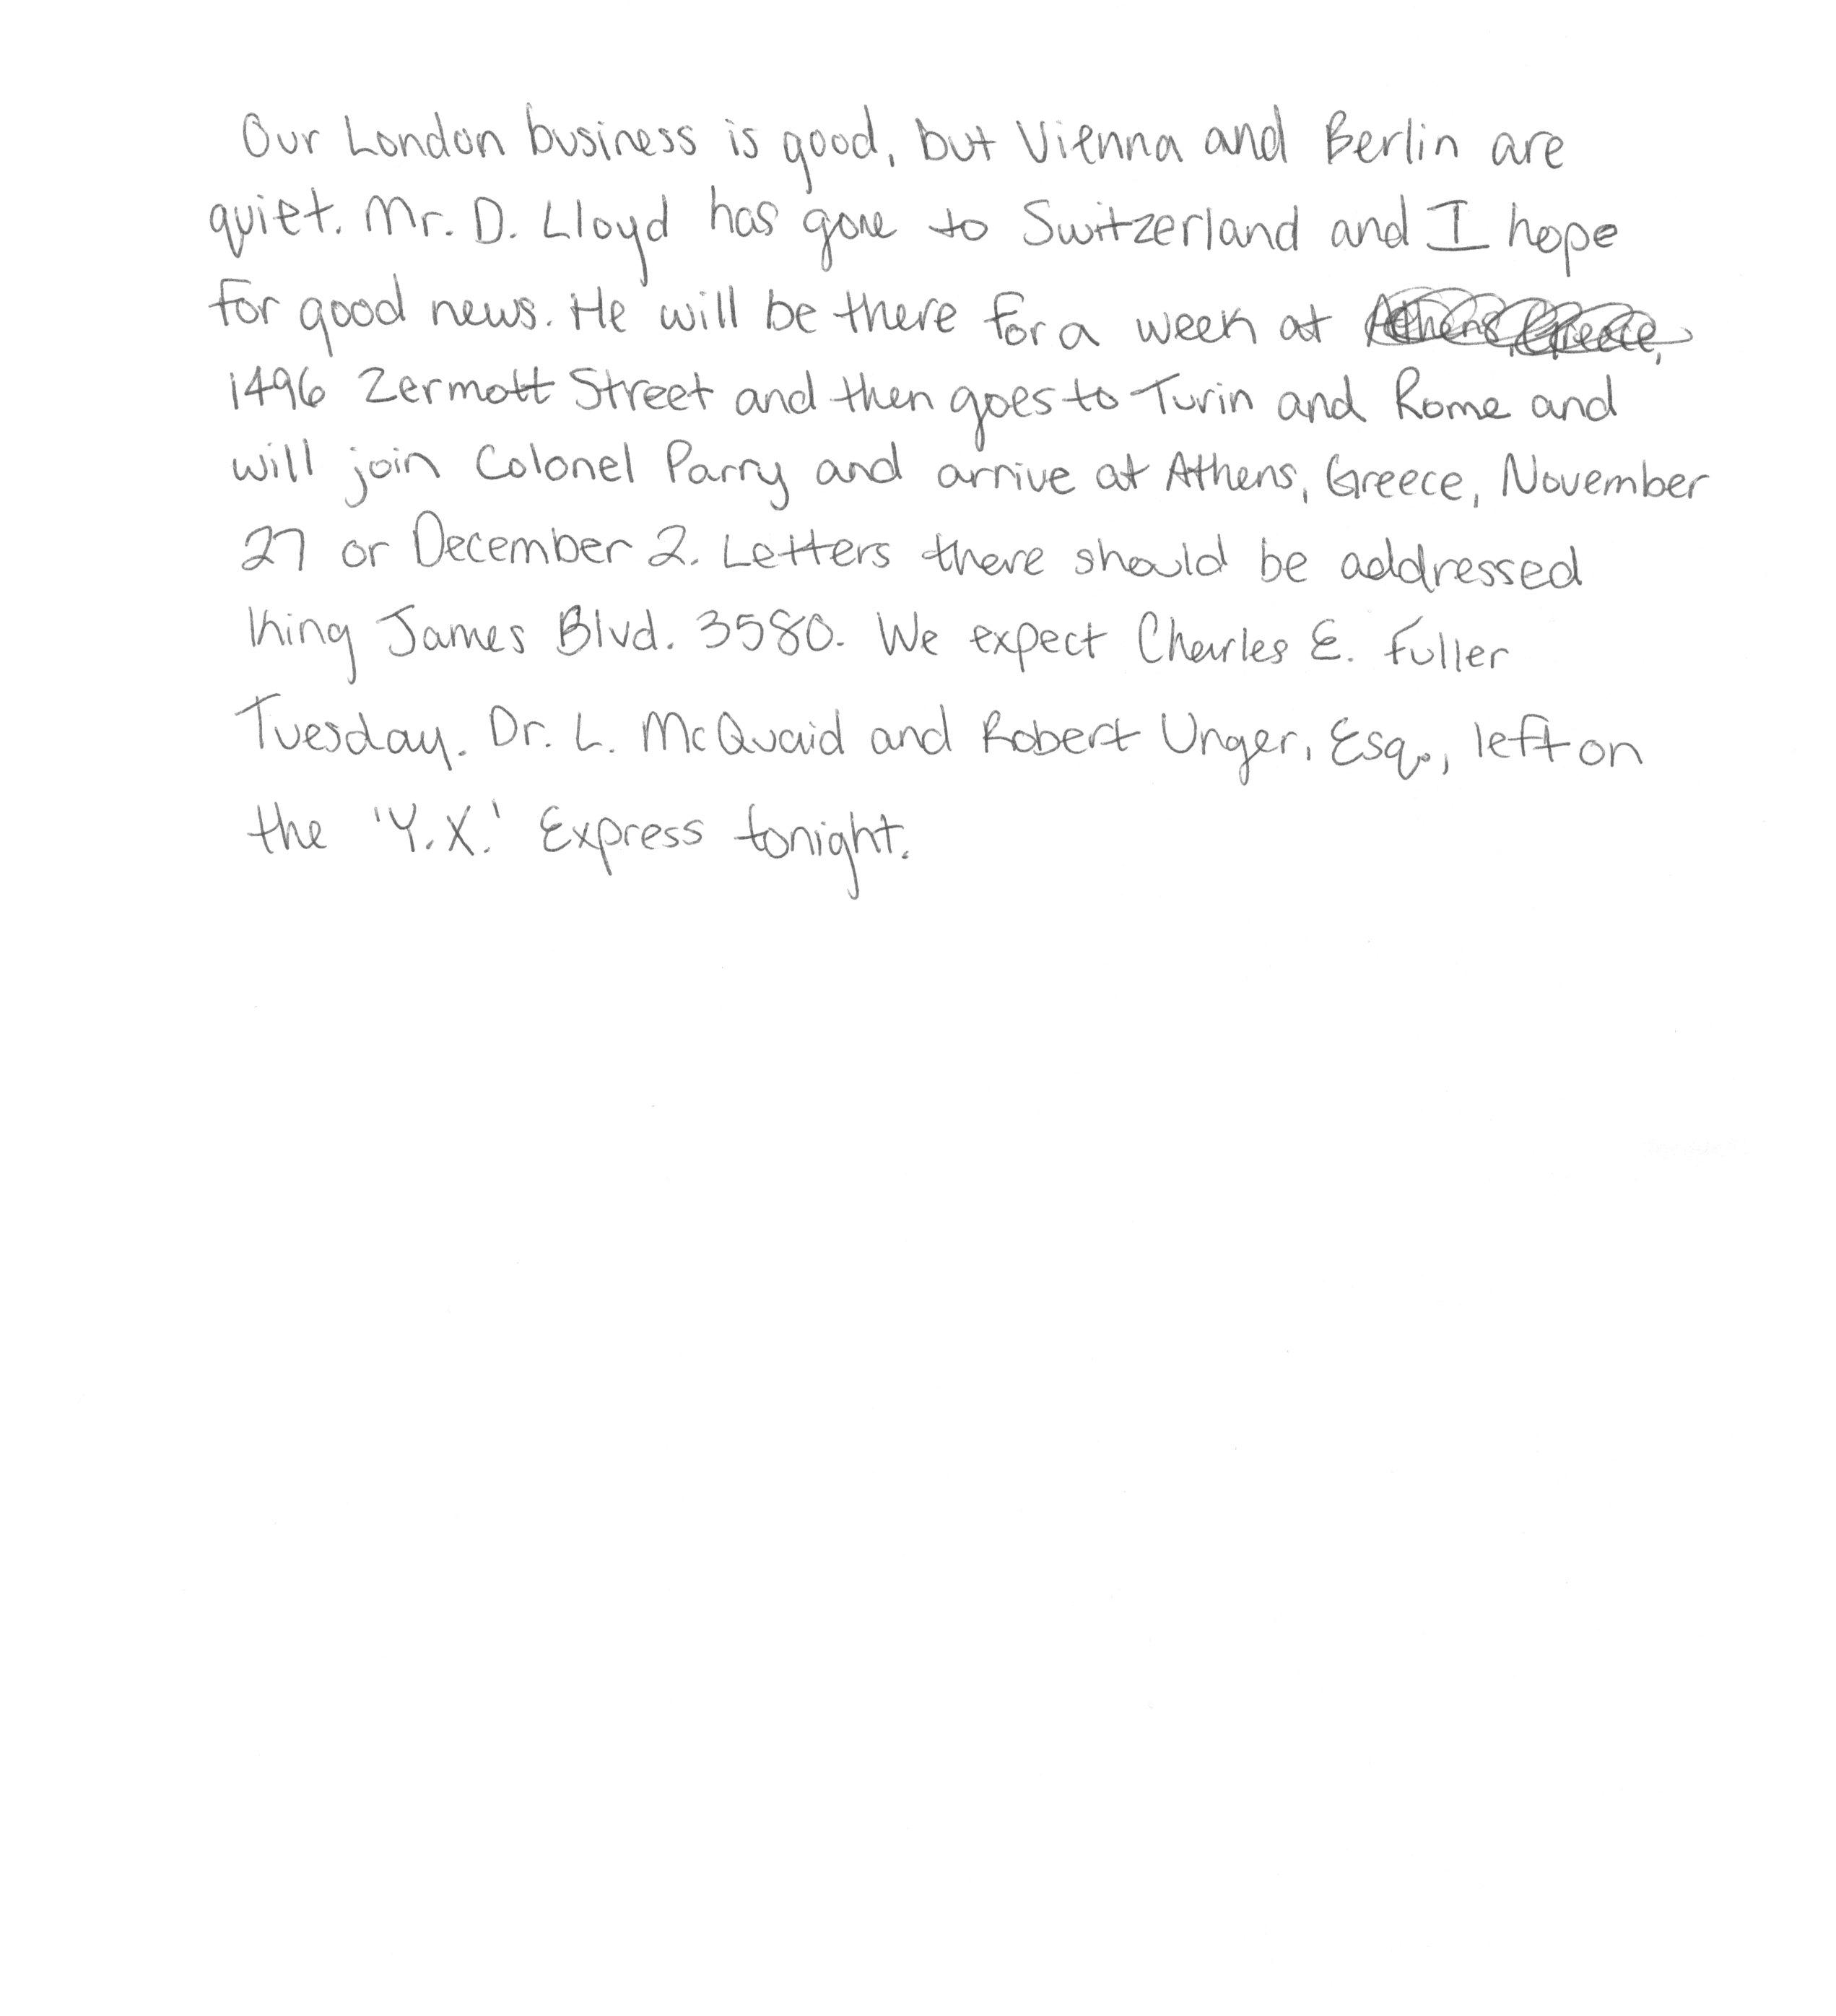 Our London business is good, but Vienna and Berlin are
quiet. Mr. D. Lloyd has gone to Switzerland and I hope
for good news. He will be there for a week at Athens, Greece,
1496 Zermott Street and then goes to Turin and Rome and
will join Colonel Parry and arrive at Athens, Greece, November
27 or December 2. Letters there should be addressed
King James Blvd. 3580. We expect Charles E. Fuller
Tuesday. Dr. L. McQuaid and Robert Unger, Esq., left on
the 'Y.X.' Express tonight.